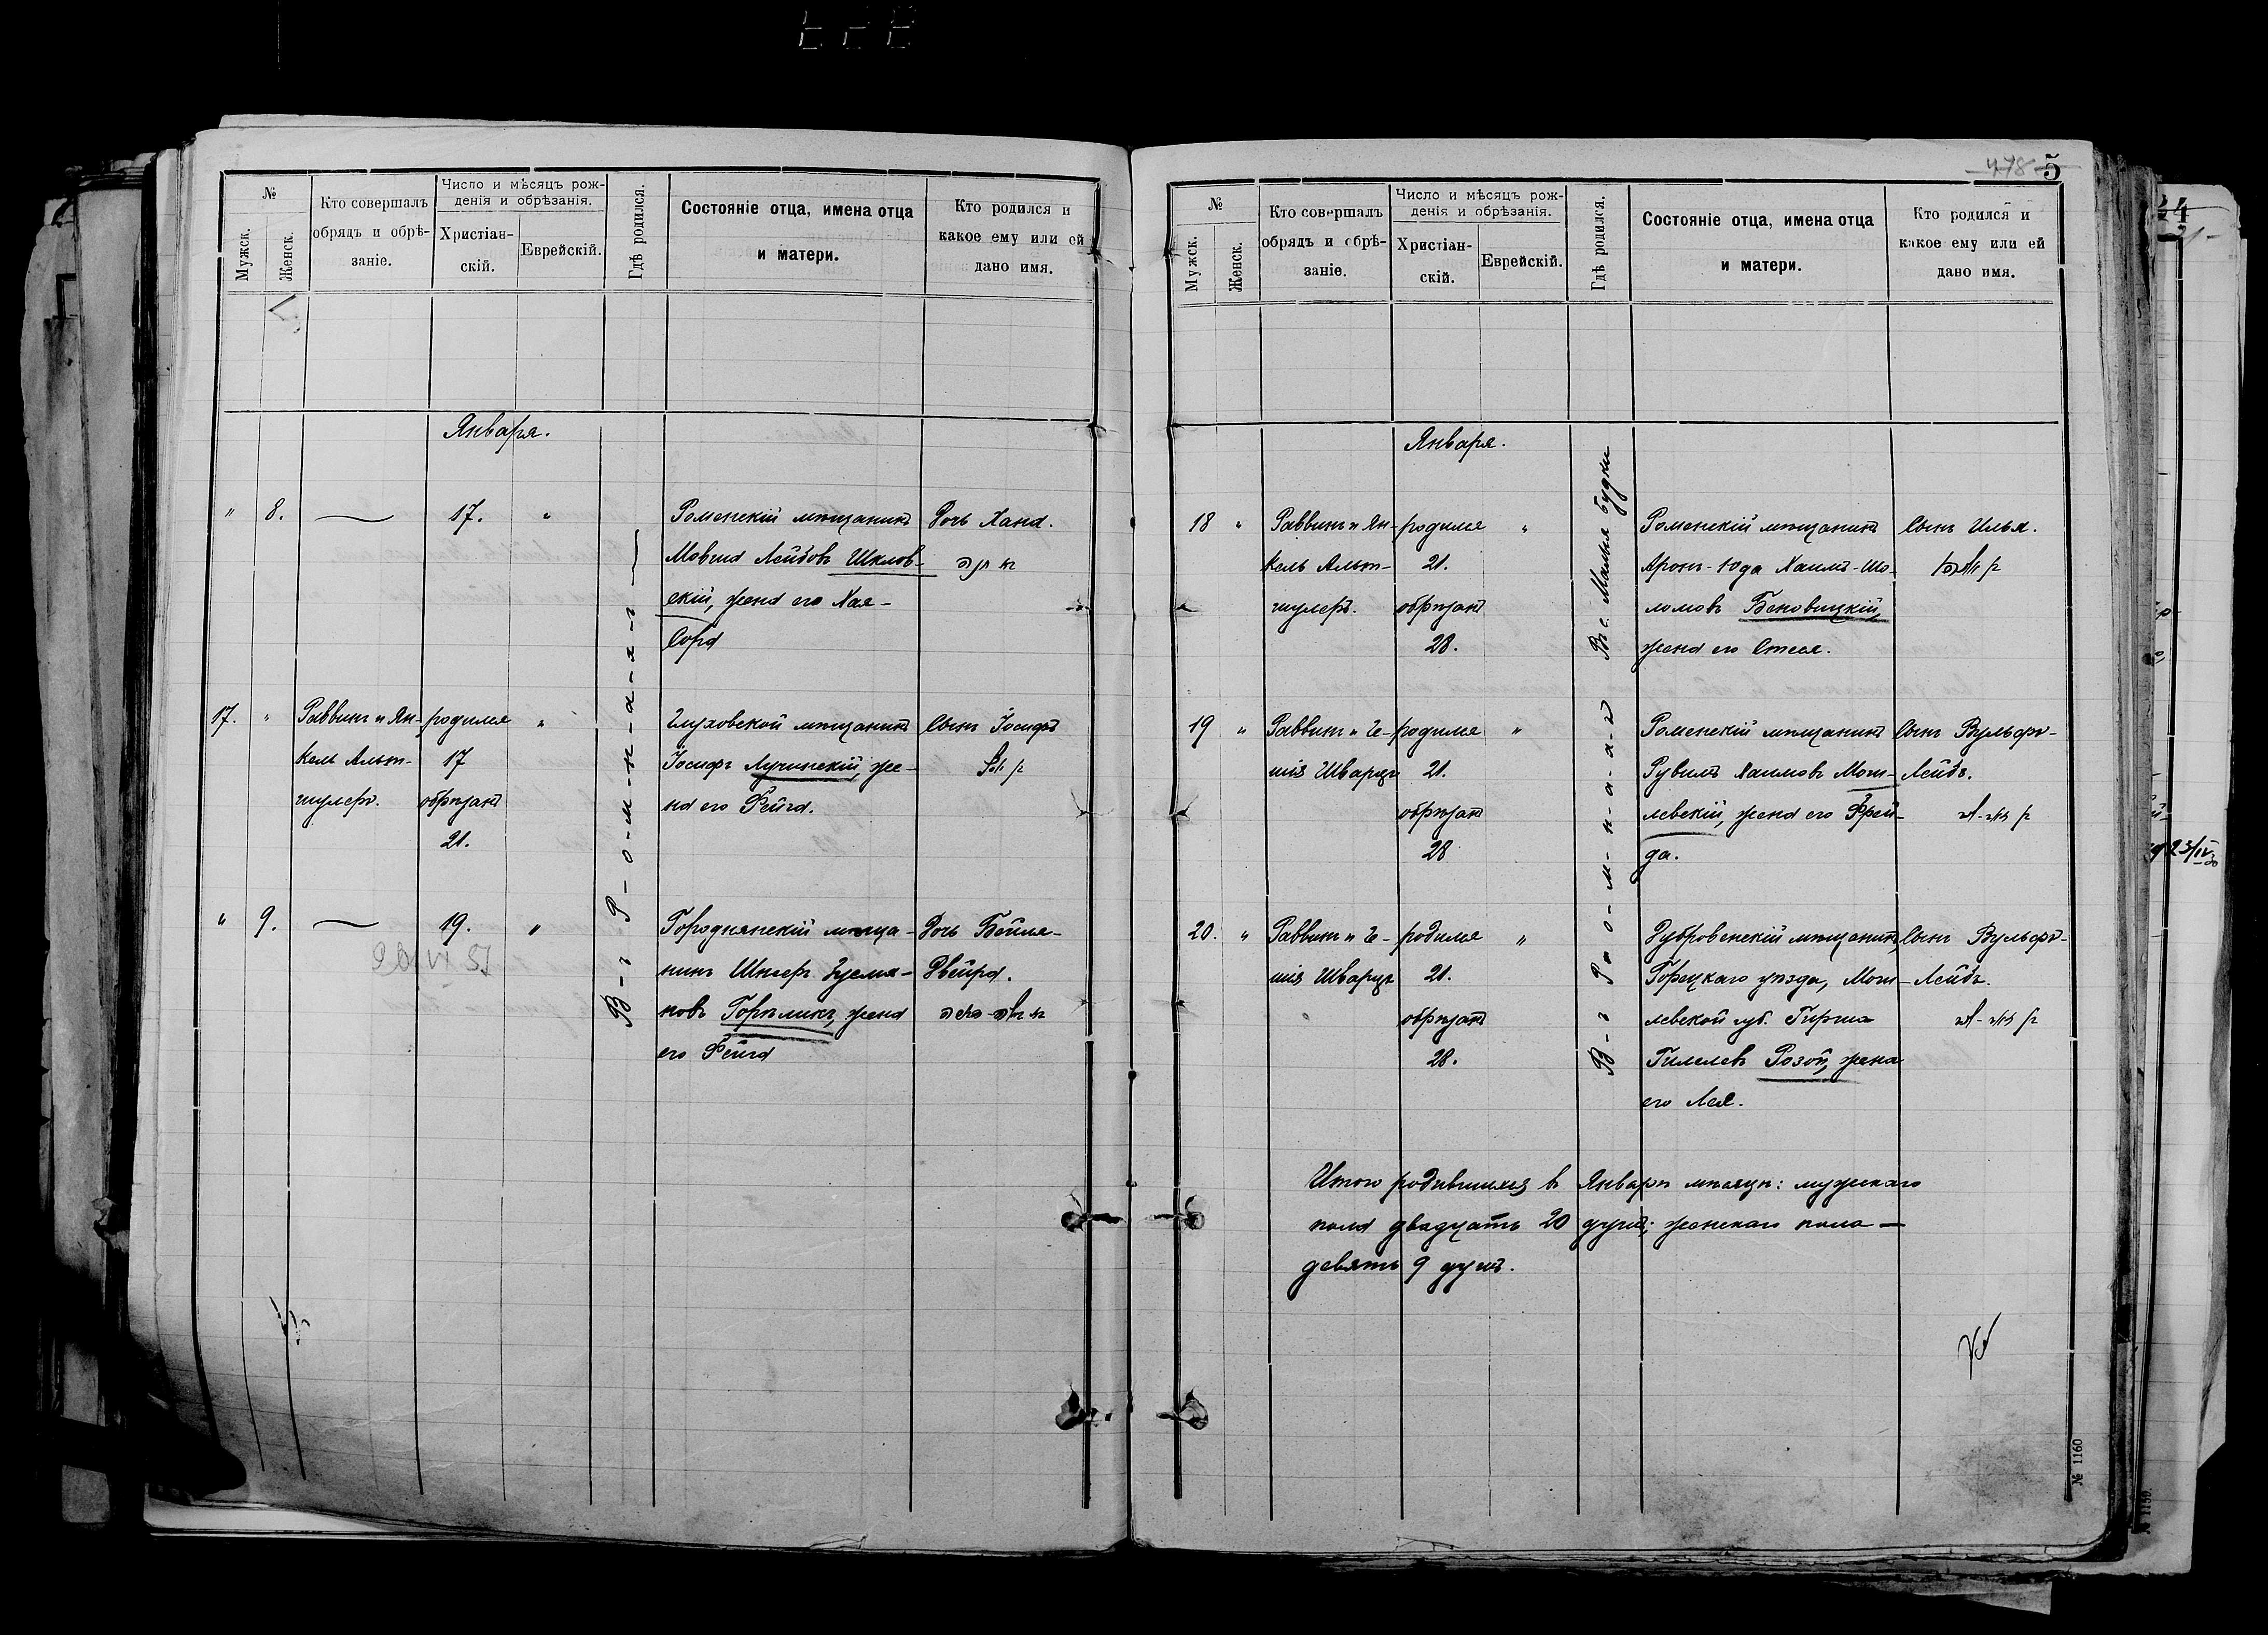 №
Мужск.
Женск.
Кто совершалъ
обрядъ и обрѣ-
заніе.
Число и мѣсяцъ рож-
денія и обрѣзанія.
Христіан-
скій.
Еврейскій.
Гдѣ родился.
Состояніе отца, имена отца
и матери.
Кто родился и
какое ему или ей
дано имя.
Января.
" 8. — 17. "
Роменскій мѣщанинъ
Мовша Лейбовъ Шклов-
скій, жена его Хая-
Сора
Дочь Хана.
17. "
Раввинъ и Ян-
кель Альт-
шулеръ.
родился "
17
обрѣзанъ
21.
Глуховской мѣщанинъ
Іосифъ Лучинскій, же-
на его Фейга.
Сынъ Іосифъ
" 9. — 19. "
Городнянскій мѣща-
нинъ Шнееръ Зусма-
новъ Горѣликъ, жена
его Фейга
Дочь Бейля-
Двейра.
В-ъ Р-о-м-н-а-х-ъ
478
5
№
Мужск.
Женск.
Кто совершалъ
обрядъ и обрѣ-
заніе.
Число и мѣсяцъ рож-
денія и обрѣзанія.
Христіан-
скій.
Еврейскій.
Гдѣ родился.
Состояніе отца, имена отца
и матери.
Кто родился и
какое ему или ей
дано имя.
Января.
18 "
Раввинъ и Ян-
кель Альт-
шулеръ.
родился "
21.
обрѣзанъ
28.
Въ с. Малыя будки
Роменскій мѣщанинъ
Аронъ-Юда Хаимъ-Шо-
ломовъ Беновицкій,
жена его Стеся.
Сынъ Илья.
19 "
Раввинъ и Ге-
шія Шварцъ
родился "
21.
обрѣзанъ
28
Роменскій мѣщанинъ
Рувимъ Хаимовъ Моги-
левскій, жена его Фрей-
да.
Сынъ Вульфъ-
Лейбъ.
20. "
Раввинъ и Ге-
шія Шварцъ
родился "
21.
обрѣзанъ
28.
В-ъ Р-о-м-н-а-х-ъ
Дубровенскій мѣщанинъ,
Горецкаго уѣзда, Моги-
левской губ. Гирша
Гилелевъ Розой, жена
его Лея.
Сынъ Вульфъ-
Лейбъ.
Итого родившихся въ Январѣ мѣсяцѣ: мужскаго
пола двадцать 20 душъ; женскаго пола —
девять 9 душъ.
№ 1160